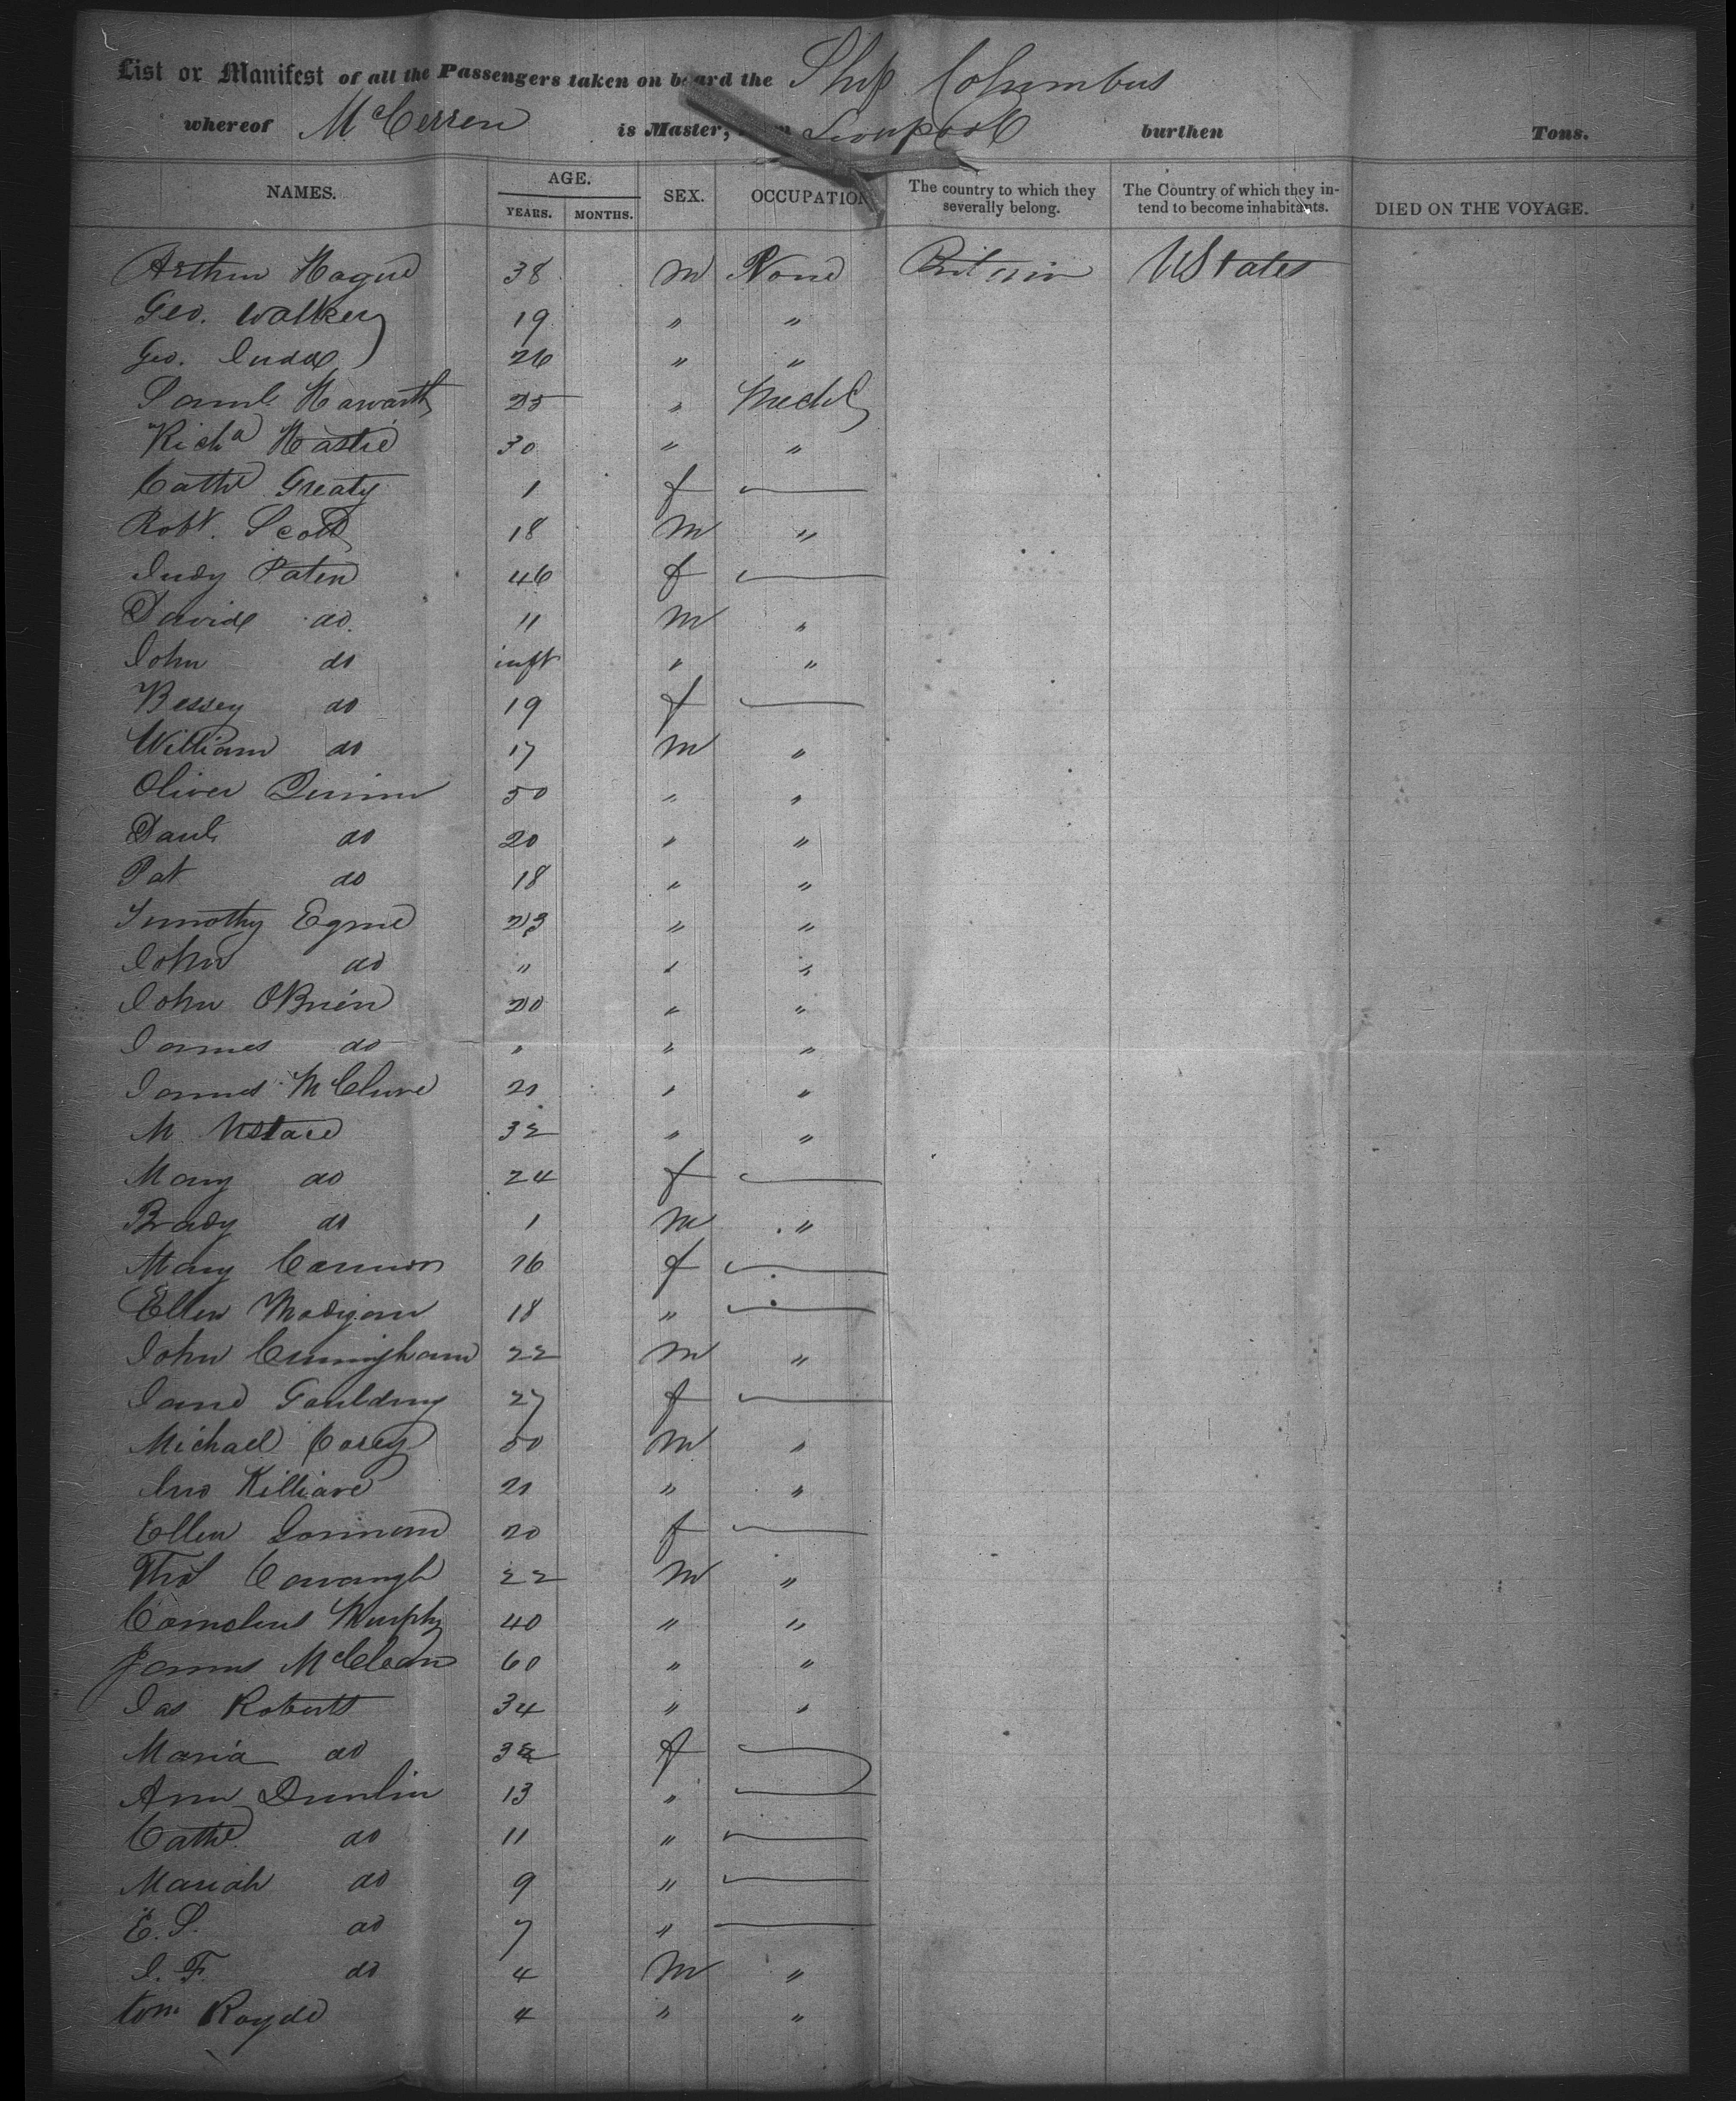 List or Manifest of all the Passengers taken on board the Ship Columbus
whereof McCerren is Master, from Liverpool burthen Tons.
NAMES. AGE. YEARS. MONTHS. SEX. OCCUPATION The country to which they severally belong. The Country of which they in-tend to become inhabitants. DIED ON THE VOYAGE.
Arthur Hague 38 M None Britain UStates
Geo. Walker 19 " "
Geo. Judd 26 " "
Saml Haworth 25 "
Richd Hastie 30 " "
Cathe Greaty 1 f —
Robt. Scott 18 M "
Judy Paten 46 f —
David do 11 M "
John do inft " "
Bessey do 19 f —
William do 17 M "
Oliver 50 " "
Danl do 20 " "
Pat do 18 " "
Timothy Egne 23 " "
John do " " "
John OBrien 20 " "
James do " " "
James McClure 21 " "
M 32 " "
Mary do 24 f —
Brady do 1 M "
Mary Cannon 16 f —
Ellen Madigan 18 " —
John Cunningham 22 M "
Jane Goulding 27 f —
Michael Carey 50 M "
Jno 21 " "
Ellen 20 f —
Thos Cavanagh 22 M "
Cornelius Murphy 40 " "
James McClean 60 " "
Jas Roberts 34 " "
Maria do 32 f —
Ann Dunlin 13 " —
Cathe do 11 " —
Mariah do 9 " —
E. S. do 7 " —
J. F. do 4 M "
tom Royde 4 " "